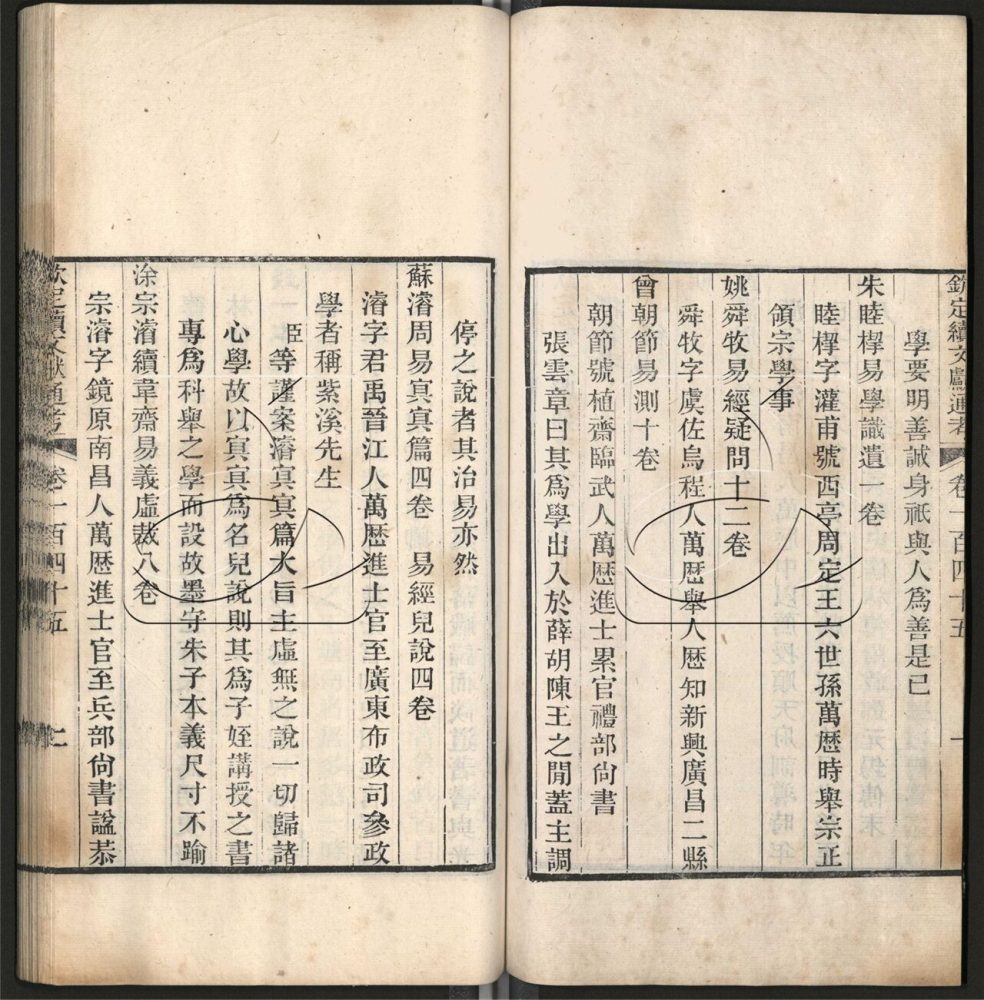 欽定續文獻通考 卷一百四十五
學要明善誠身祇與人爲善是已
朱睦㮮易學識遺一卷
睦㮮字灌甫號西亭周定王六世孫萬厯時舉宗正
領宗學事
姚舜牧易經疑問十二卷
舜牧字虞佐烏程人萬厯舉人厯知新興廣昌二縣
曾朝節易測十卷
朝節號植齋臨武人萬厯進士累官禮部尙書
張雲章曰其爲學出入於薛胡陳王之閒蓋主調
停之說者其治易亦然
蘇濬周易㝠㝠篇四卷 易經兒說四卷
濬字君禹晉江人萬厯進士官至廣東布政司參政
學者稱紫溪先生
臣等謹案濬㝠㝠篇大旨主虛無之說一切歸諸
心學故以㝠㝠爲名兒說則其爲子姪講授之書
專爲科舉之學而設故墨守朱子本義尺寸不踰
涂宗濬續韋齋易義虛裁八卷
宗濬字鏡原南昌人萬厯進士官至兵部尙書諡恭
欽定續文獻通考 卷一百四十五